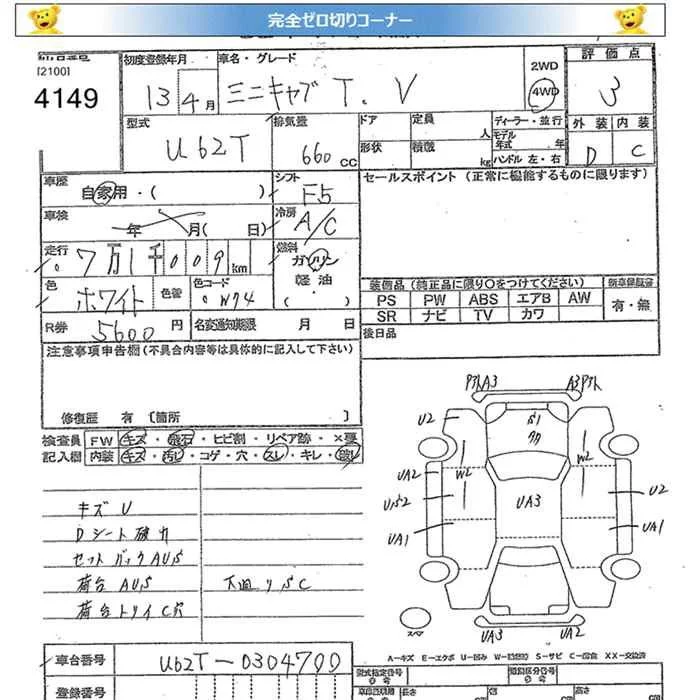 完全ゼロ切りコーナー
[2100]
4149
初度登録年月
13 4月
車名・グレード
ミニキャブ T. V
2WD
4WD
評価点
3
型式
U62T
排気量
660 cc
ドア
定員
人
形状
積載
kg
ディーラー・並行
モデル年式 年
ハンドル 左・右
外装 内装
D C
車歴
自家用・( )
シフト
F5
セールスポイント(正常に機能するものに限ります)
車検
年 月( 日)
冷房
A/C
走行
7万1千009 km
燃料
ガソリン
軽油
( )
色
ホワイト
色替
色コード
W94
装備品(純正品に限り〇をつけてください)
PS PW ABS エアB AW
SR ナビ TV カワ
新車保証書
有・無
R券
5600円
名変通知期限 月 日
後日品
注意事項申告欄(不具合内容等は具体的に記入して下さい)
修復歴 有〔箇所 〕
検査員記入欄
FW キズ・飛石・ヒビ割・リペア跡・×要
内装 キズ・汚レ・コゲ・穴・スレ・キレ・
キズ U
Dシート破れ
セットバックAUS
荷台 AUS
荷台トリイ C穴
下廻りSC
A3 A3
U2
W2 W2
UA2
UA3
U2
UA1 UA1
スペア
UA3 UA2
A－キズ E－エクボ U－凹み W－補修跡 S－サビ C－腐食 XX－交換済
車台番号
U62T－0304700
登録番号
型式指定番号
類別区分番号
長さ
幅
高さ